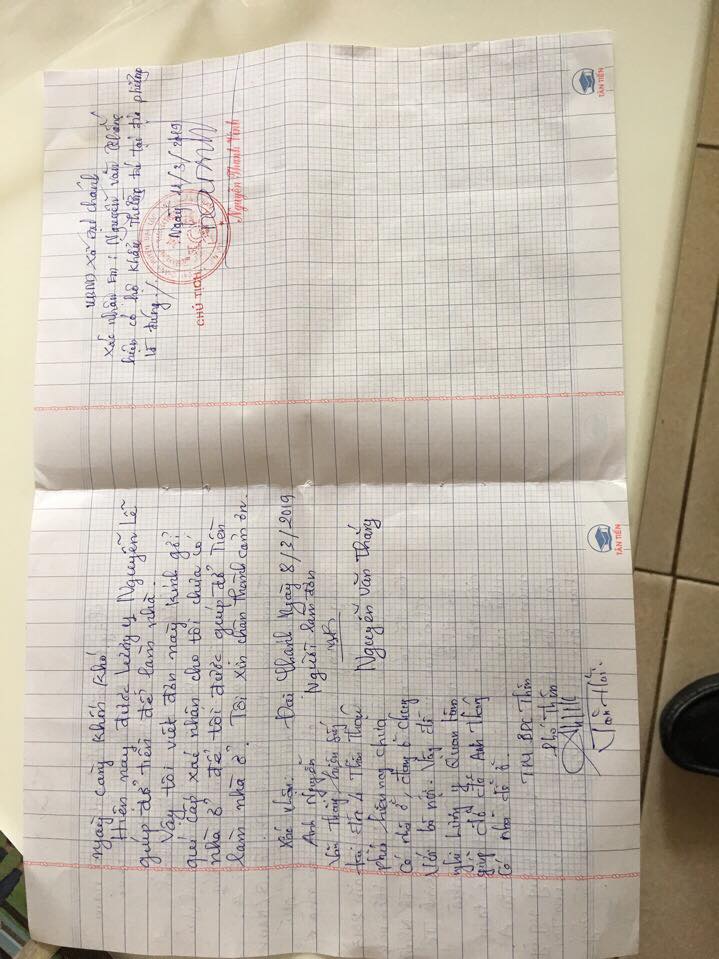 ngày càng khốn khó.
Hiện nay được Lương y Nguyễn Lễ
giúp đỡ tiền để làm nhà.
Vậy tôi viết đơn này kính gởi
quí cấp xác nhận cho tôi chưa có
nhà ở để tôi được giúp đỡ tiền
làm nhà ở. Tôi xin chân thành cảm ơn.
Xác nhận:
Anh Nguyễn
Văn Thắng hiện đang
tại tổ 4 Thôn
hiện nay chưa
có nhà ở, đang ở chung
với bà nội. Vậy đề
nghị Lương y quan tâm
giúp đỡ để Anh Thắng
có nhà để ở.
TM BDC Thôn
Phó Thôn
Đại Chánh Ngày 8/3/2019
Người làm đơn
Nguyễn Văn Thắng
UBND xã Đại Chánh
Xác nhận em: Nguyễn Văn Thắng
hiện có hộ khẩu thường trú tại địa phương
là đúng./
Ngày 11/3/2019
CHỦ TỊCH
Nguyễn Thanh Vinh
TÂN TIẾN
TÂN TIẾN